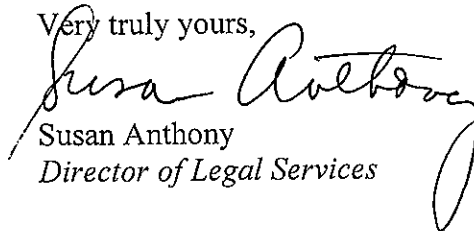 Very truly yours,
Susan Anthony
Susan Anthony
Director of Legal Services